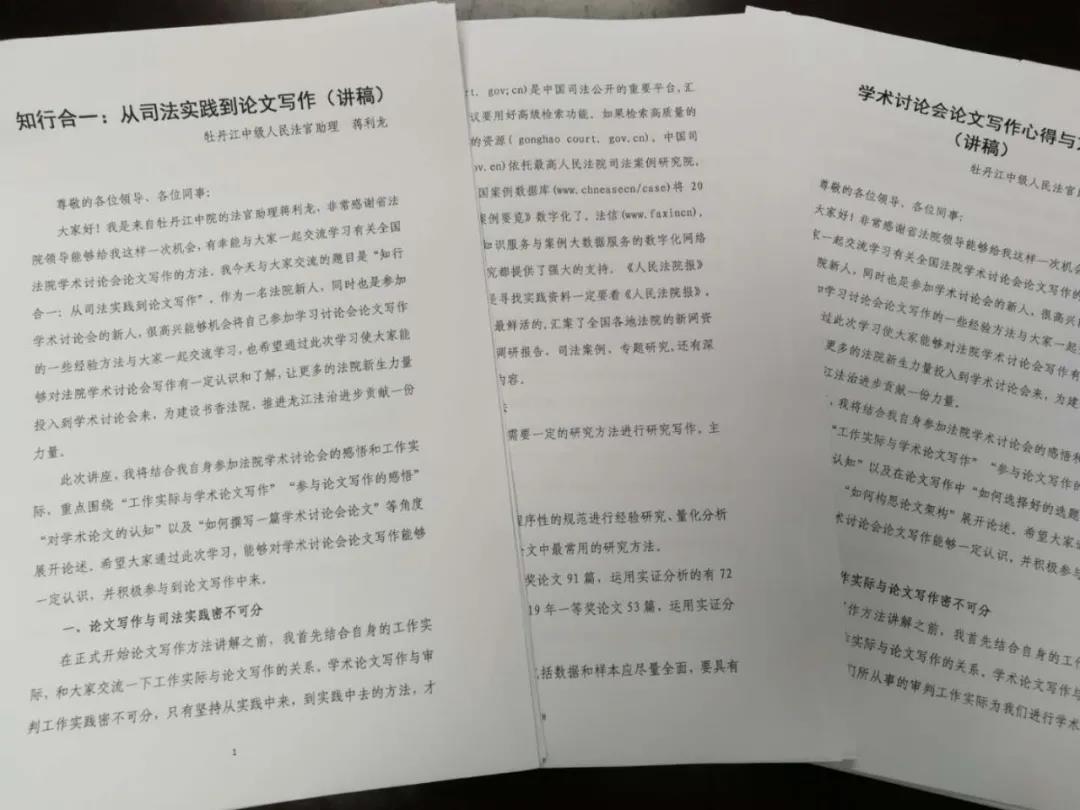 知行合一：从司法实践到论文写作（讲稿）
牡丹江中级人民法官助理 蒋利龙
尊敬的各位领导、各位同事：
大家好！我是来自牡丹江中院的法官助理蒋利龙，非常感谢省法
院领导能够给我这样一次机会，有幸能与大家一起交流学习有关全国
法院学术讨论会论文写作的方法。我今天与大家交流的题目是“知行
合一：从司法实践到论文写作”。作为一名法院新人，同时也是参加
学术讨论会的新人，很高兴能够机会将自己参加学习讨论会论文写作
的一些经验方法与大家一起交流学习，也希望通过此次学习使大家能
够对法院学术讨论会写作有一定认识和了解，让更多的法院新生力量
投入到学术讨论会来，为建设书香法院，推进龙江法治进步贡献一份
力量。
此次讲座，我将结合我自身参加法院学术讨论会的感悟和工作实
际，重点围绕“工作实际与学术论文写作”“参与论文写作的感悟”
“对学术论文的认知”以及“如何撰写一篇学术讨论会论文”等角度
展开论述。希望大家通过此次学习，能够对学术讨论会论文写作能够
一定认识，并积极参与到论文写作中来。
一、论文写作与司法实践密不可分
在正式开始论文写作方法讲解之前，我首先结合自身的工作实
际，和大家交流一下工作实际与论文写作的关系。学术论文写作与审
判工作实践密不可分，只有坚持从实践中来，到实践中去的方法，才
1
rt. gov;cn)是中国司法公开的重要平台，汇
议要用好高级检索功能。如果检索高质量的
的资源( gonghao court. gov.cn)，中国司
ov.cn)依托最高人民法院司法案例研究院，
国案例数据库(www.chneasecn/case)将 20
案例要览》数字化了。法信(www.faxincn)，
知识服务与案例大数据服务的数字化网络
究都提供了强大的支持。《人民法院报》
是寻找实践资料一定要看《人民法院报》，
最鲜活的，汇案了全国各地法院的新网资
调研报告、司法案例、专题研究，还有深
内容。
需要一定的研究方法进行研究写作，主
程序性的规范进行经验研究、量化分析
论文中最常用的研究方法。
奖论文 91 篇，运用实证分析的有 72
19 年一等奖论文 53 篇，运用实证分
括数据和样本应尽量全面，要具有
学术讨论会论文写作心得与
（讲稿）
牡丹江中级人民法官
尊敬的各位领导、各位同事：
大家好！非常感谢省法院领导能够给我这样一次机会
家一起交流学习有关全国法院学术讨论会论文写作的
院新人，同时也是参加学术讨论会的新人，很高兴能
加学习讨论会论文写作的一些经验方法与大家一起交
过此次学习使大家能够对法院学术讨论会写作有
更多的法院新生力量投入到学术讨论会来，为建
江法治进步贡献一份力量。
，我将结合我自身参加法院学术讨论会的感悟和
“工作实际与学术论文写作”“参与论文写作的
认知”以及在论文写作中“如何选择好的选题
“如何构思论文架构”展开论述。希望大家
术讨论会论文写作能够一定认识，并积极参与
作实际与论文写作密不可分
作方法讲解之前，我首先结合自身的工
实际与论文写作的关系。学术论文写作与
们所从事的审判工作实际为我们进行学术